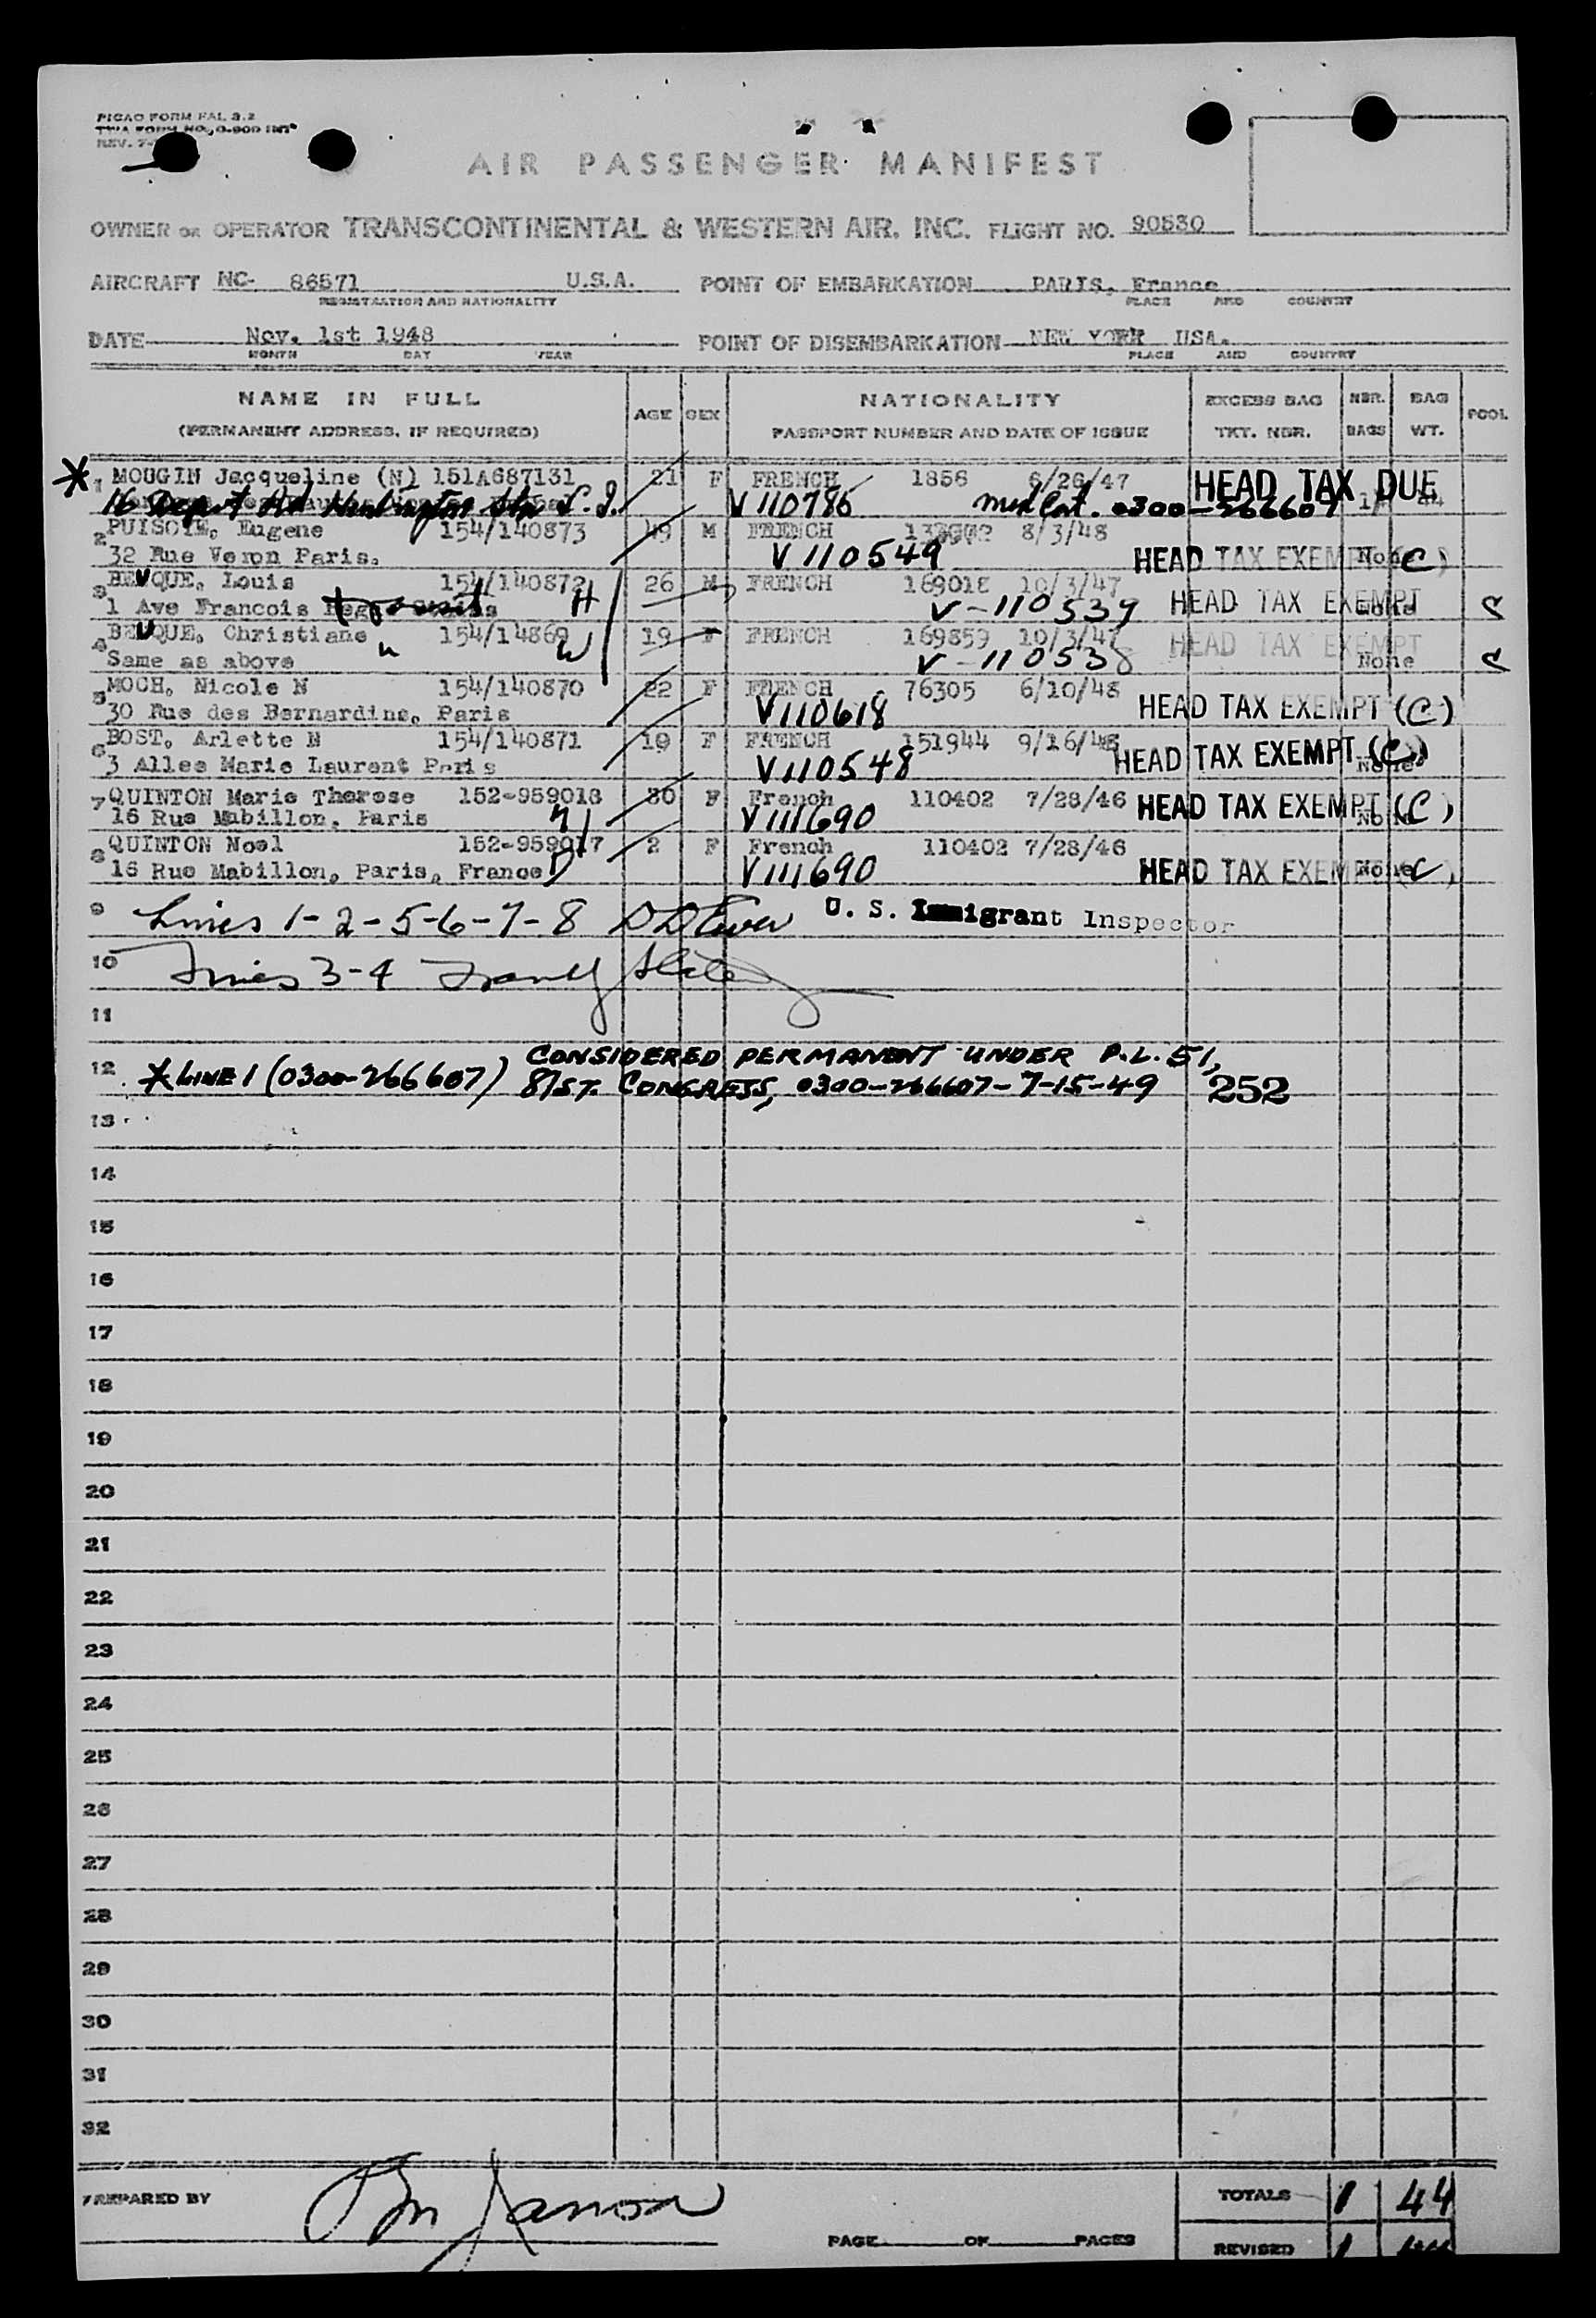 PICAO FORM FAL 3.2
TWA FORM NO. O-900 INT'
REV. 7-
AIR PASSENGER MANIFEST
OWNER OR OPERATOR TRANSCONTINENTAL & WESTERN AIR, INC. FLIGHT NO. 90530
AIRCRAFT NC- 86571 U.S.A. POINT OF EMBARKATION PARIS, France
REGISTRATION AND NATIONALITY PLACE AND COUNTRY
DATE Nov. 1st 1948 POINT OF DISEMBARKATION NEW YORK USA.
MONTH DAY YEAR PLACE AND COUNTRY
NAME IN FULL AGE SEX NATIONALITY EXCESS BAG NBR. BAG POOL
(PERMANENT ADDRESS, IF REQUIRED) PASSPORT NUMBER AND DATE OF ISSUE TKT. NBR. BAGS WT.
* 1 MOUGIN Jacqueline (N) 151A687131 21 F FRENCH 1856 6/26/47 HEAD TAX DUE
16 Depot Rd Huntington Sta L.I. V110786 0300-266607 1 44
2 PUISOIE, Eugene 154/140873 49 M FRENCH 8/3/48
32 Rue Veron Paris. V110549 HEAD TAX EXEMPT None (C)
3 BEUQUE, Louis 154/140872 H 26 M FRENCH 169018 10/3/47
1 Ave Francois V-110539 HEAD TAX EXEMPT None C
4 BEUQUE, Christiane 154/14869 W 19 F FRENCH 169859 10/3/47 HEAD TAX EXEMPT
Same as above V-110538 None C
5 MOCH, Nicole N 154/140870 22 F FRENCH 76305 6/10/48
30 Rue des Bernardins, Paris V110618 HEAD TAX EXEMPT (C)
6 BOST, Arlette N 154/140871 19 F FRENCH 151944 9/16/48
3 Allee Marie Laurent Paris V110548 HEAD TAX EXEMPT (C) None
7 QUINTON Marie Therese 152-959018 30 F French 110402 7/28/46
16 Rue Mabillon, Paris M V111690 HEAD TAX EXEMPT (C)
8 QUINTON Noel 152-959017 2 F French 110402 7/28/46
16 Rue Mabillon, Paris, France D V111690 HEAD TAX EXEMPT None (C)
9 Lines 1-2-5-6-7-8 U. S. Immigrant Inspector
10 Lines 3-4
11
12 * LINE 1 (0300-266607) CONSIDERED PERMANENT UNDER P.L. 51,
81ST. CONGRESS, 0300-266607-7-15-49 252
13
14
15
16
17
18
19
20
21
22
23
24
25
26
27
28
29
30
31
32
PREPARED BY TOTALS 1 44
PAGE OF PAGES REVISED 1 44